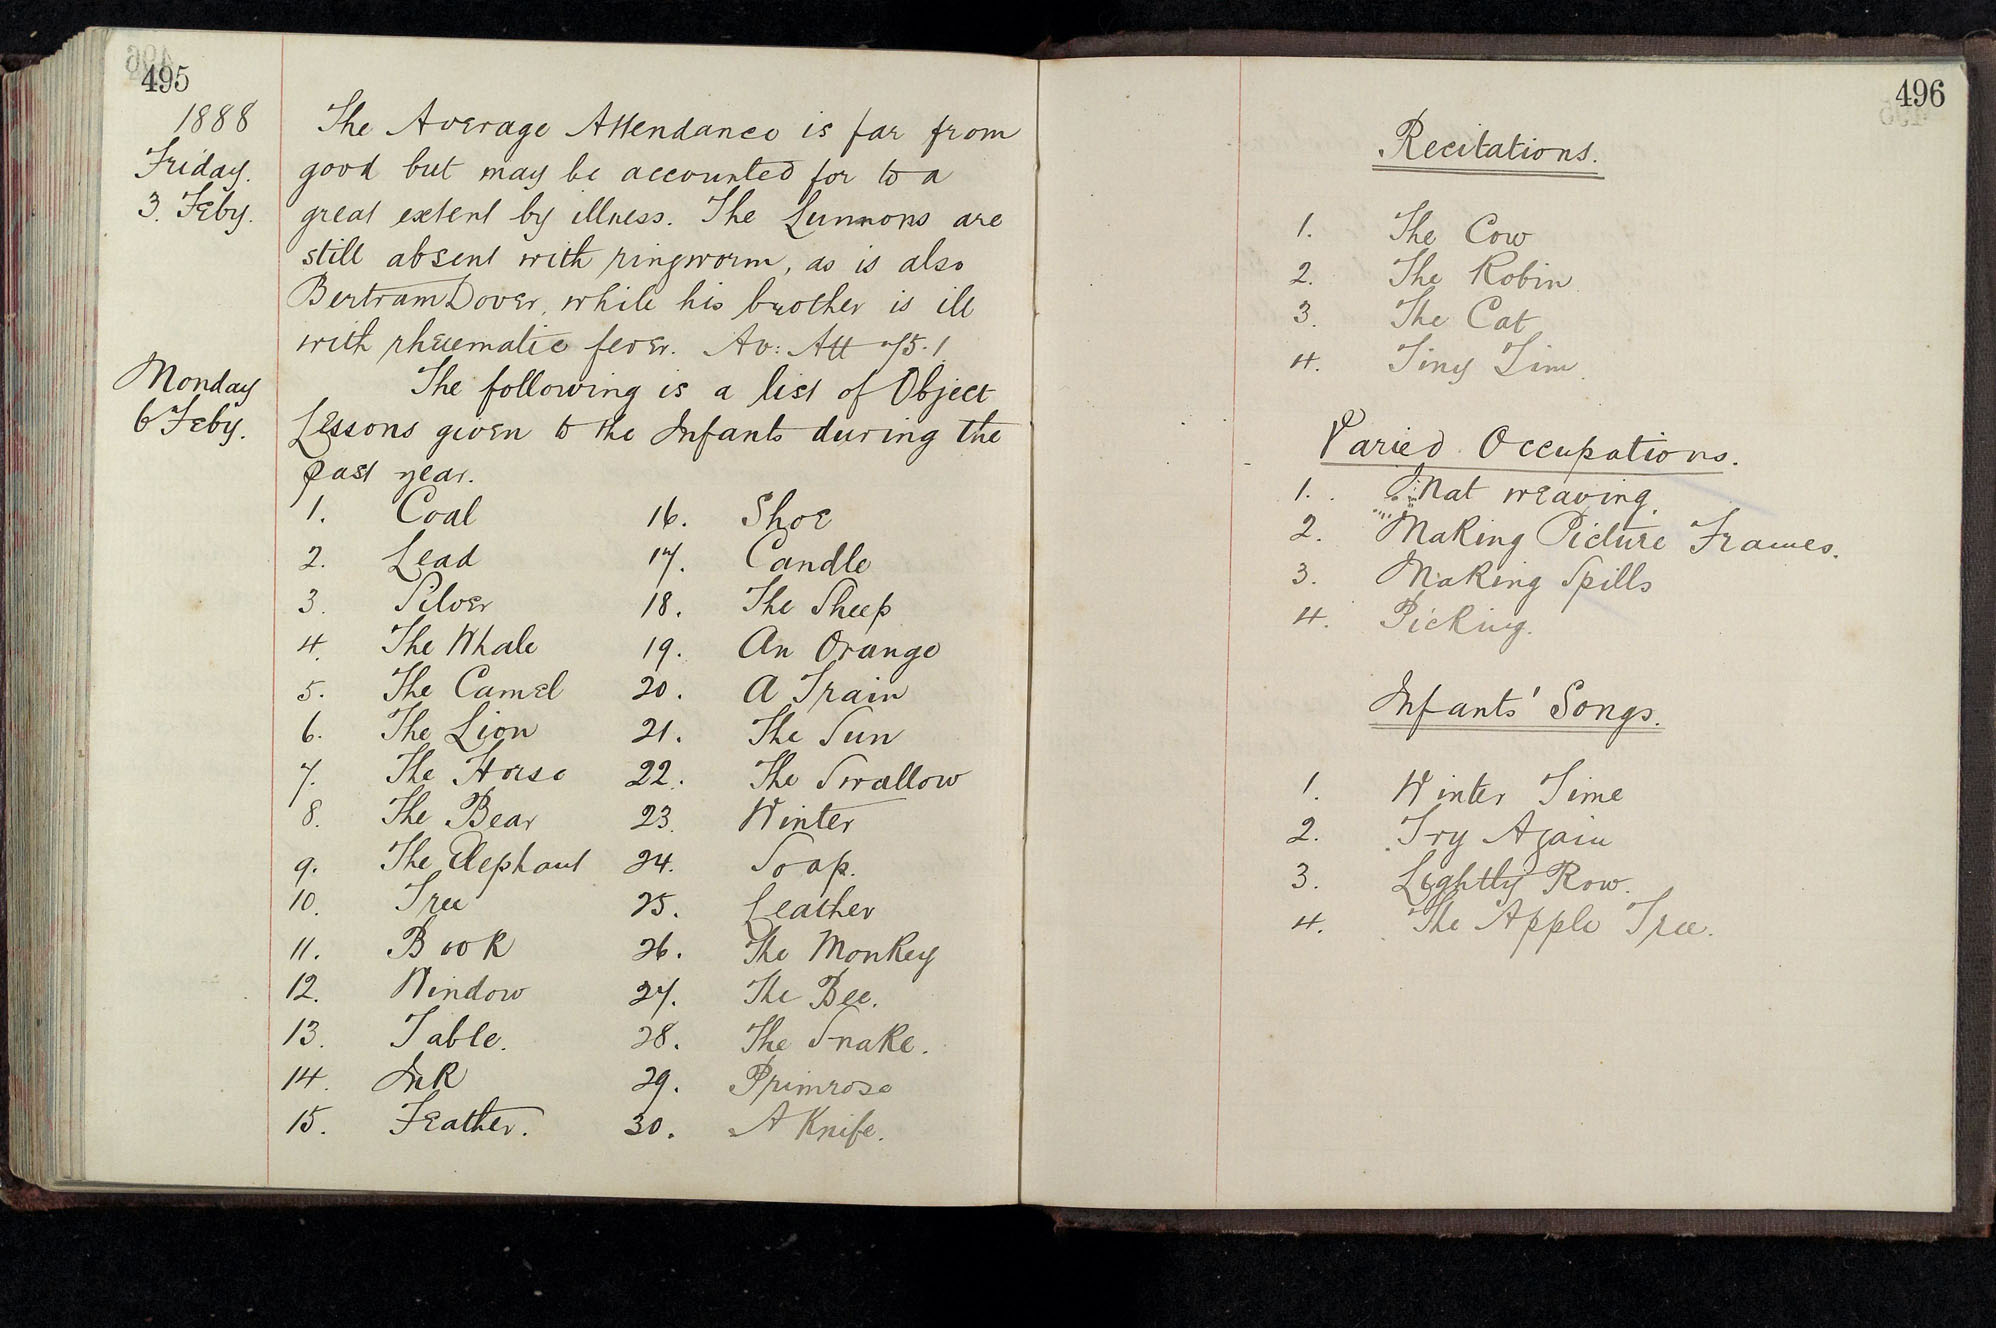 495
1888
Friday.
3. Feby.
The Average Attendance is far from
good but may be accounted for to a
great extent by illness. The Lunnons are
still absent with ringworm, as is also
Bertram Dover, while his brother is ill
with rheumatic fever. Av: Att 75.1
Monday
6 Feby.
The following is a list of Object
Lessons given to the Infants during the
past year.
1. Coal 16. Shoe
2. Lead 17. Candle
3. Silver 18. The Sheep
4. The Whale 19. An Orange
5. The Camel 20. A Train
6. The Lion 21. The Sun
7. The Horse 22. The Swallow
8. The Bear 23. Winter
9. The Elephant 24. Soap.
10. Tree 25. Leather
11. Book 26. The Monkey
12. Window 27. The Bee.
13. Table. 28. The Snake.
14. Ink 29. Primrose
15. Feather. 30. A Knife.
496
Recitations.
1. The Cow
2. The Robin
3. The Cat
4. Tiny Tim
Varied Occupations.
1. Mat weaving.
2. Making Picture Frames.
3. Making Spills
4. Picking.
Infants' Songs.
1. Winter Time
2. Try Again
3. Lightly Row.
4. The Apple Tree.